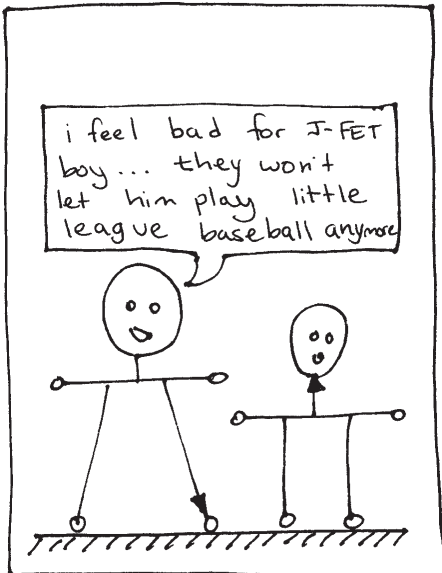 i feel bad for J-FET
boy... they won't
let him play little
league baseball anymore